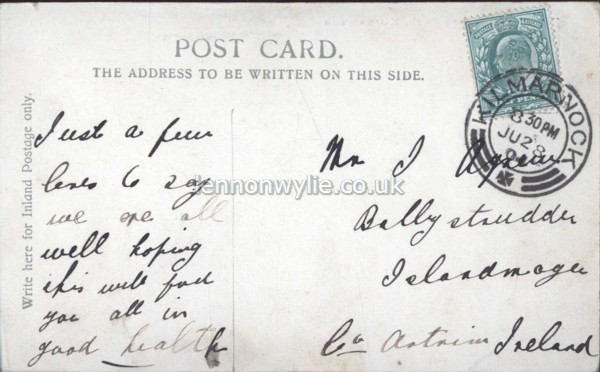 POST CARD.
THE ADDRESS TO BE WRITTEN ON THIS SIDE.
Write here for Inland Postage only.
Just a few
lines to say
we are all
well hoping
this will find
you all in
good health
KILMARNOCK
8 30PM
JU 28
Mr J Agnew
Ballystrudder
Islandmagee
Co Antrim Ireland
lennonwylie.co.uk